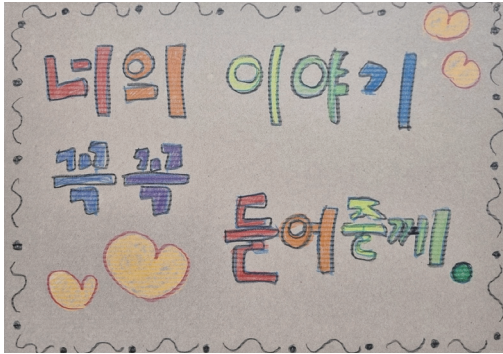 너의 이야기
꼭꼭
들어줄께.